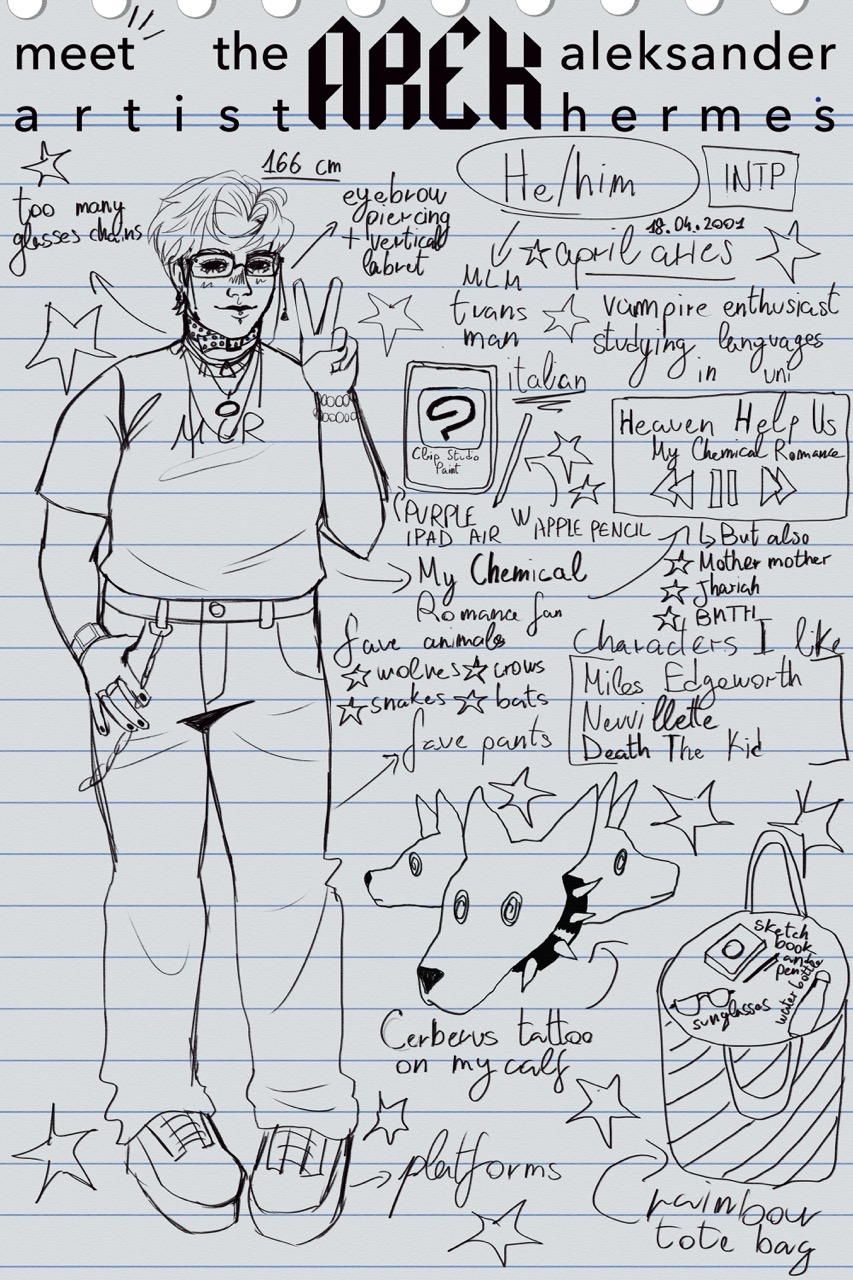 meet the AREK aleksander
artist hermes
166 cm
He/him
INTP
too many
glasses chains
eyebrow
piercing
+ vertical
labret
18.04.2001
april aries
MLM
trans
man
vampire enthusiast
studying languages
in uni
italian
MCR
Clip Studio
Paint
Heaven Help Us
My Chemical Romance
PURPLE
IPAD AIR
W/APPLE PENCIL
But also
Mother mother
Jhariah
BMTH
My Chemical
Romance fan
fave animals
wolves crows
snakes bats
Characters I like
Miles Edgeworth
Neuvillette
Death The Kid
fave pants
sketch
book
and
pen
water bottle
sunglasses
Cerberus tattoo
on my calf
platforms
rainbow
tote bag